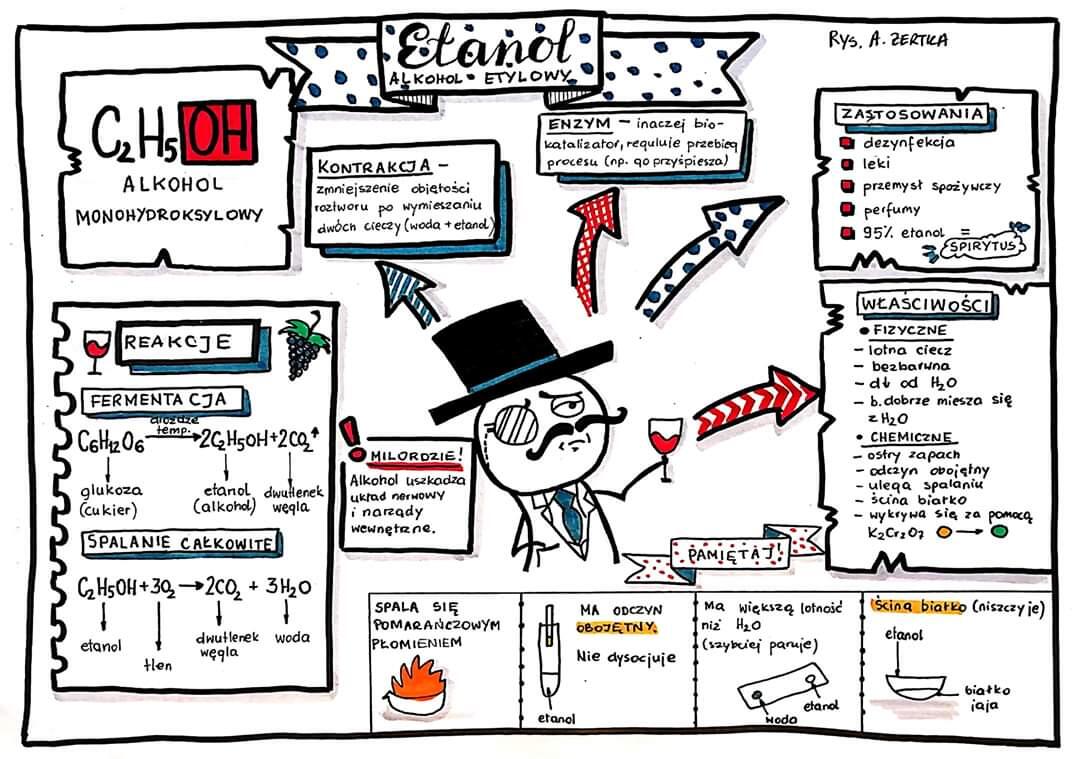 Etanol
ALKOHOL ETYLOWY
RYS. A. ZERTKA
C2H5OH
ALKOHOL
MONOHYDROKSYLOWY
KONTRAKCJA –
zmniejszenie objętości
roztworu po wymieszaniu
dwóch cieczy (woda + etanol)
ENZYM – inaczej bio-
katalizator, reguluje przebieg
procesu (np. go przyśpiesza)
ZASTOSOWANIA
dezynfekcja
leki
przemysł spożywczy
perfumy
95% etanol =
SPIRYTUS
REAKCJE
FERMENTACJA
drożdże
temp.
C6H12O6 → 2C2H5OH + 2CO2↑
glukoza
(cukier)
etanol
(alkohol)
dwutlenek
węgla
SPALANIE CAŁKOWITE
C2H5OH + 3O2 → 2CO2 + 3H2O
etanol
tlen
dwutlenek
węgla
woda
! MILORDZIE!
Alkohol uszkadza
układ nerwowy
i narządy
wewnętrzne.
WŁAŚCIWOŚCI
• FIZYCZNE
– lotna ciecz
– bezbarwna
– dł od H2O
– b. dobrze miesza się
z H2O
• CHEMICZNE
– ostry zapach
– odczyn obojętny
– ulega spalaniu
– ścina białko
– wykrywa się za pomocą
K2Cr2O7 →
PAMIĘTAJ!
SPALA SIĘ
POMARAŃCZOWYM
PŁOMIENIEM
MA ODCZYN
OBOJĘTNY.
Nie dysocjuje
etanol
Ma większą lotność
niż H2O
(szybciej paruje)
etanol
woda
Ścina białko (niszczy je)
etanol
białko
jaja